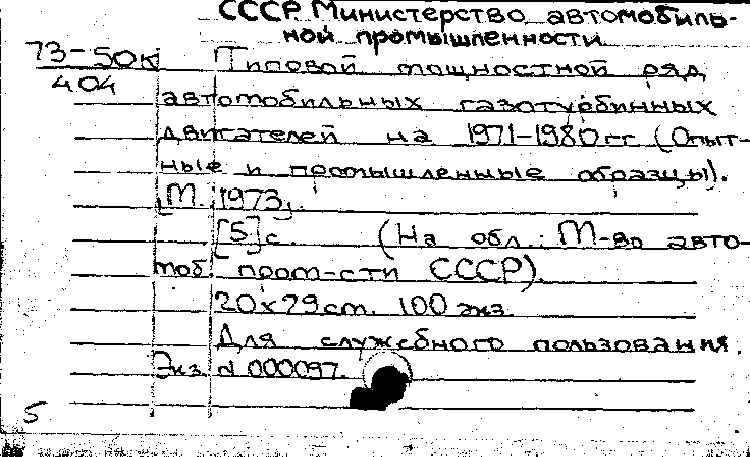 СССР Министерство автомобиль-
ной промышленности
73-50к Типовой мощностной ряд
404
автомобильных газотурбинных
двигателей на 1971-1980гг (Опыт-
ные и промышленные образцы).
[М., 1973].
[5]с. (На обл.: М-во авто-
моб. пром-сти СССР).
20х29см. 100 экз.
Для служебного пользования.
Экз. № 000097.
5